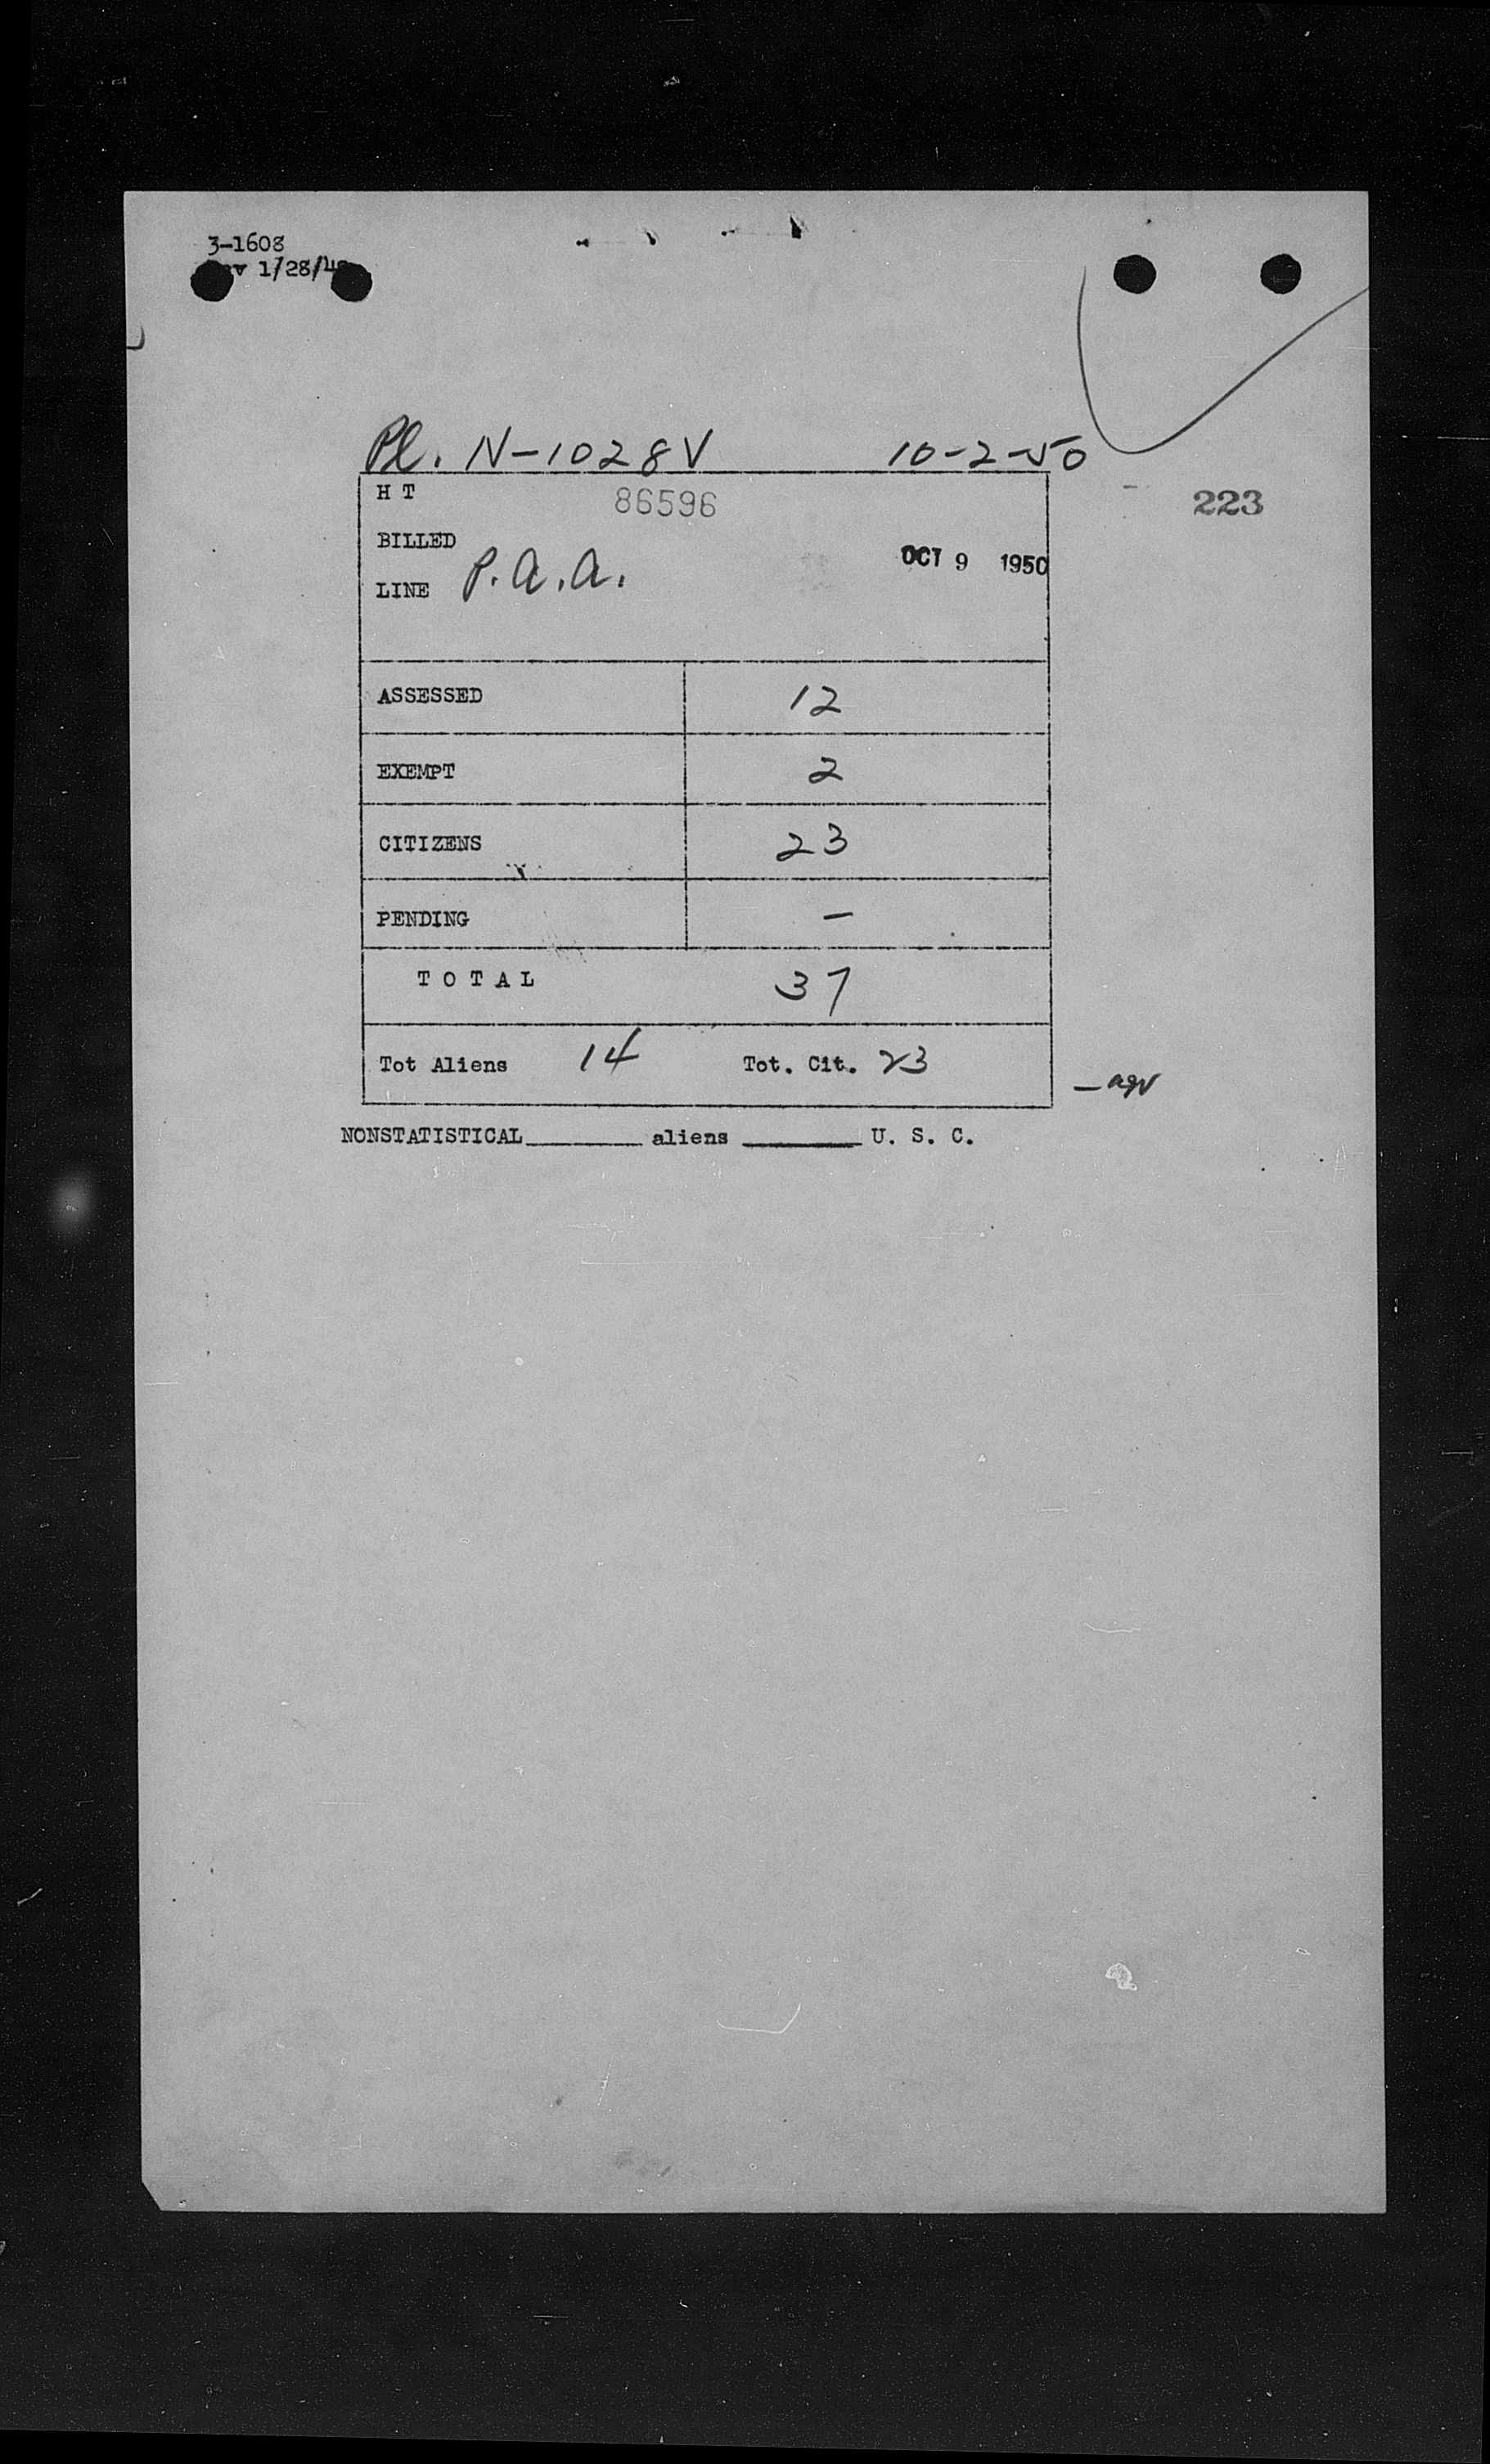 3-1608
Rev 1/28/48
Pl. N-1028V 10-2-50
H T 86596 223
BILLED
OCT 9 1950
LINE P.A.A.
ASSESSED 12
EXEMPT 2
CITIZENS 23
PENDING -
TOTAL 37
Tot Aliens 14 Tot. Cit. 23
NONSTATISTICAL________ aliens ________ U. S. C.